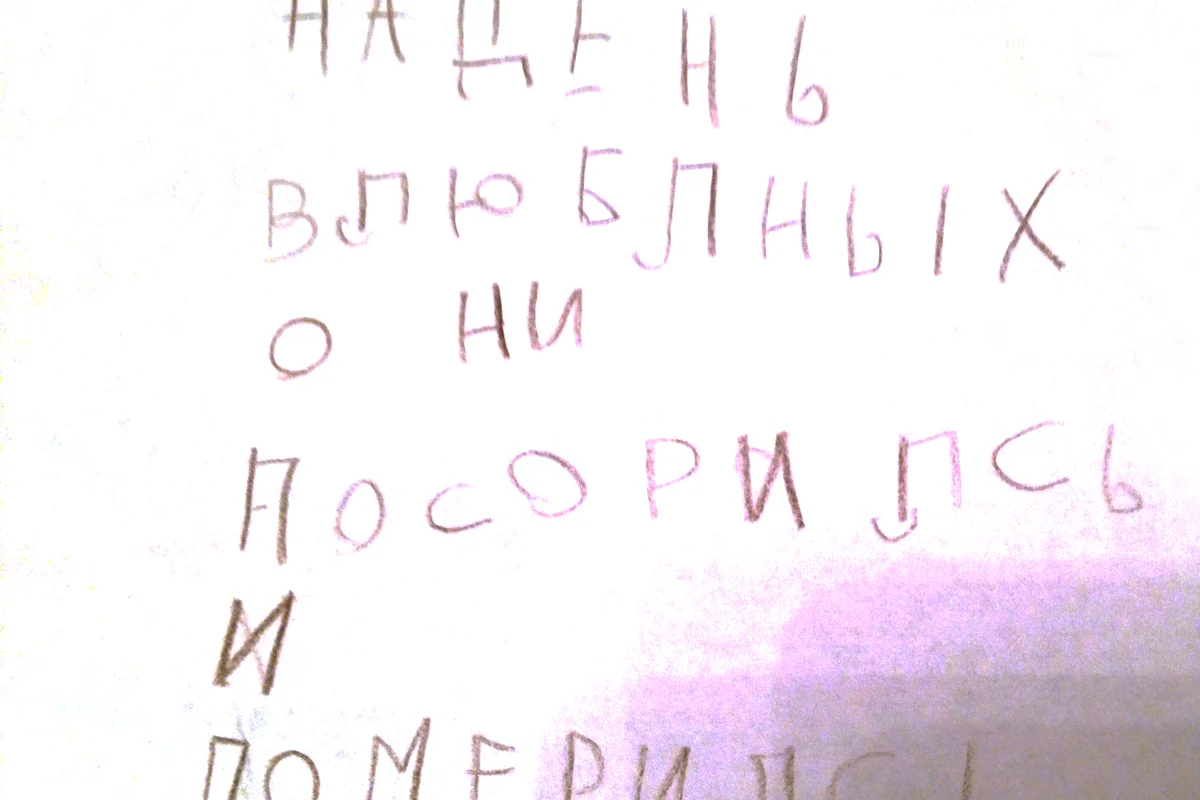 НАДЕНЬ
ВЛЮБЛНЫХ
ОНИ
ПОСОРИЛСЬ
И
ПОМЕРИЛСЬ